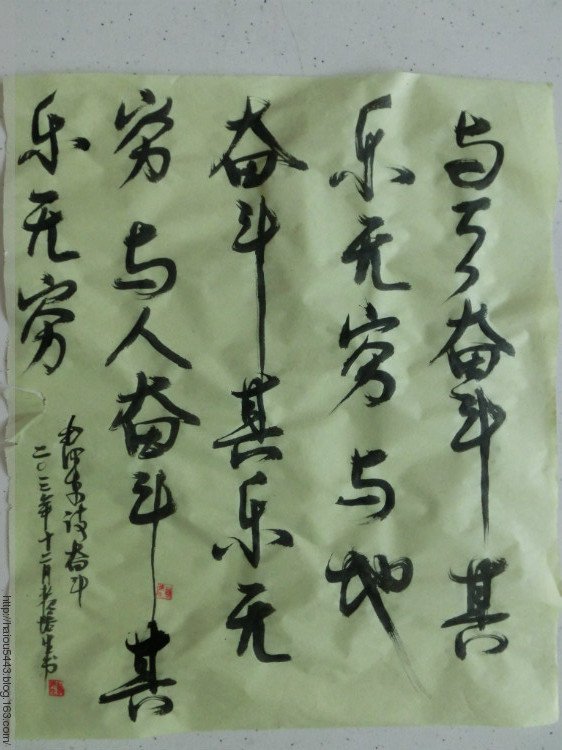 与天奋斗其
乐无穷与地
奋斗其乐无
穷与人奋斗其
乐无穷
毛泽东诗奋斗
二〇一三年十二月
http://haiou5443.blog.163.com/